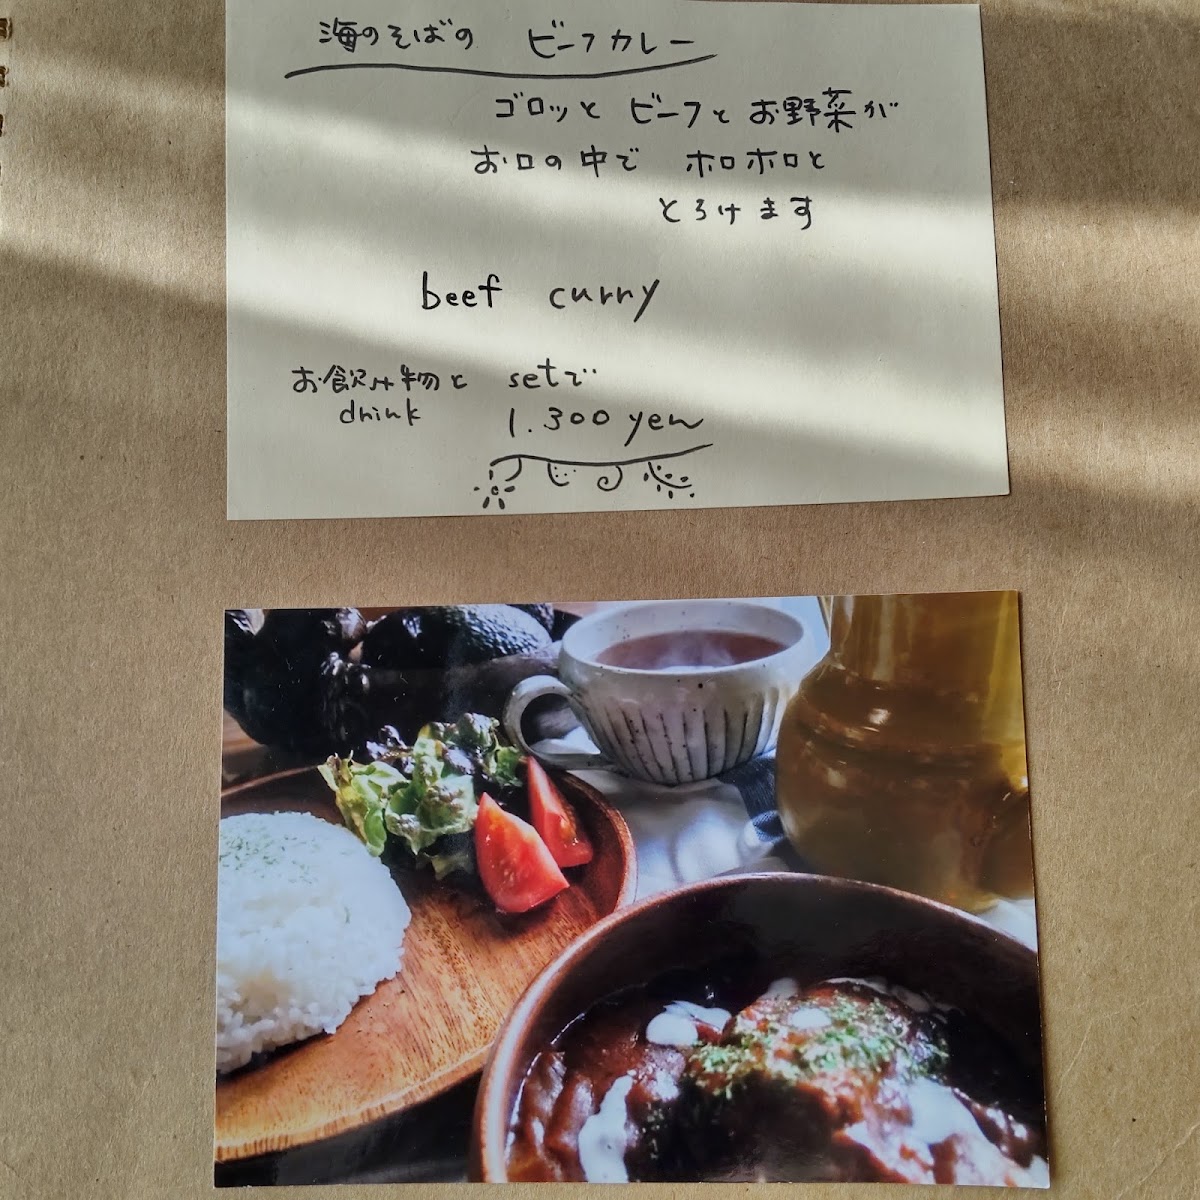 海のそばの ビーフカレー
ゴロッと ビーフとお野菜が
お口の中で ホロホロと
とろけます
beef curry
お飲み物と setで
drink 1.300 yen